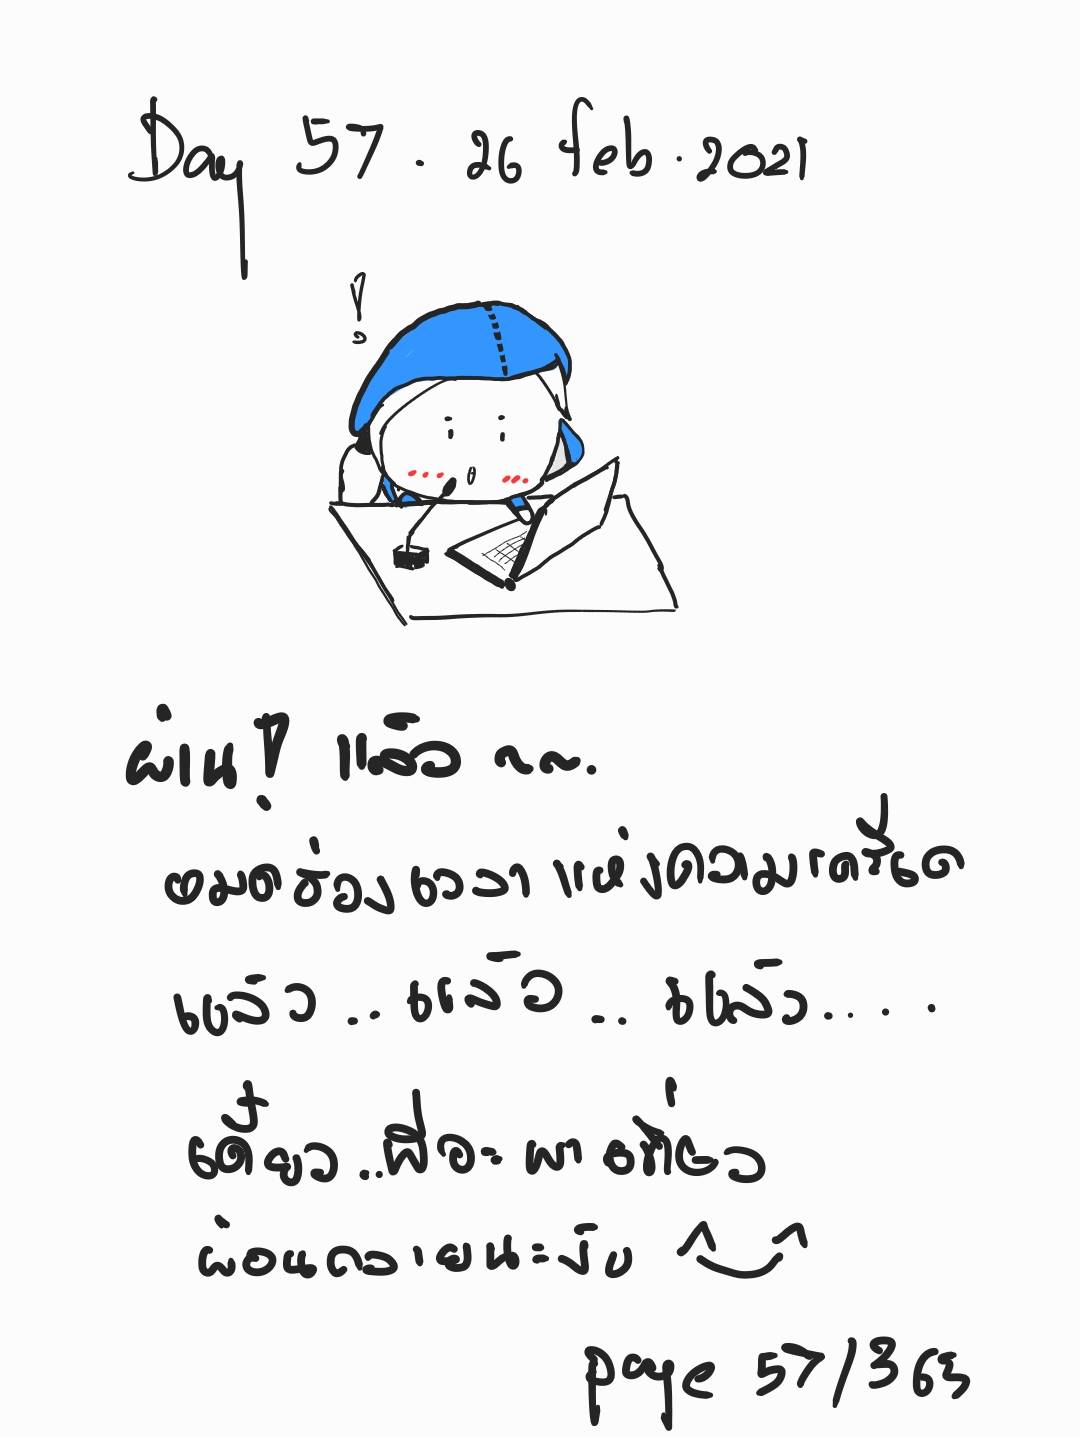 Day 57 . 26 feb . 2021
!
ผ่าน! แล้ว ~~.
หมดช่วงเวลาแห่งความเครียด
แล้ว .. แล้ว .. แล้ว ....
เดี๋ยว .. พี่จะพาเที่ยว
ผ่อนคลายนะงับ ^‿^
page 57/365